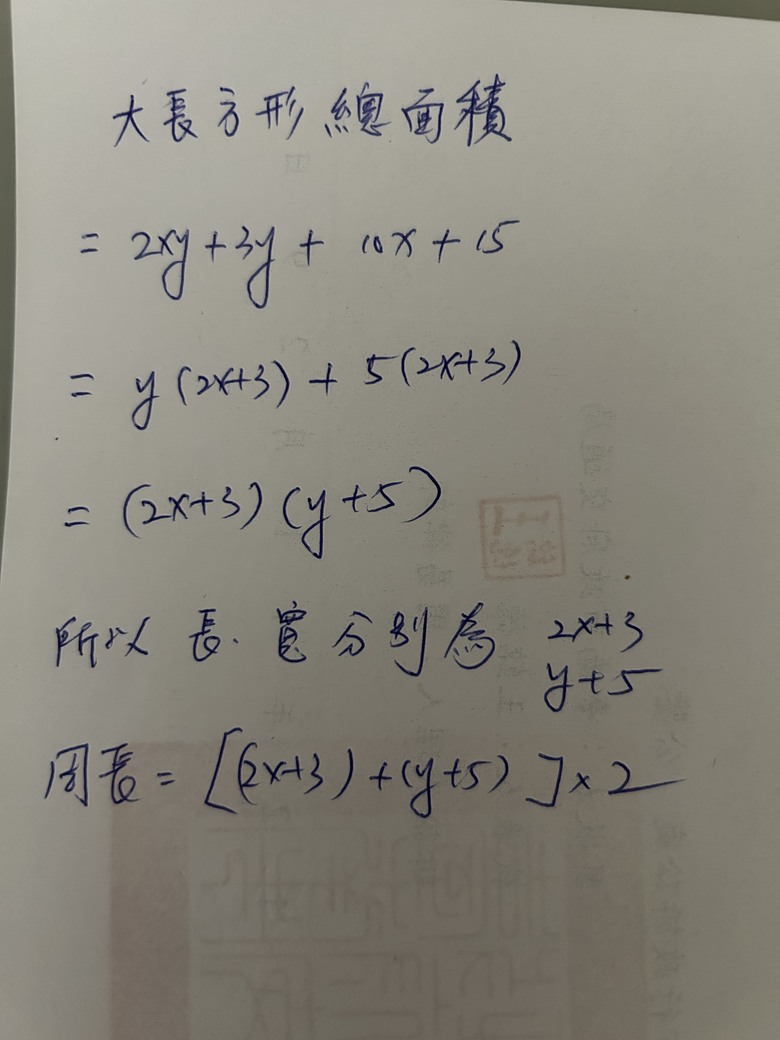 大長方形總面積
= 2xy + 3y + 10x + 15
= y (2x+3) + 5 (2x+3)
= (2x+3) (y+5)
所以 長.寬分別為 2x+3
y+5
周長 = [(2x+3) + (y+5)] × 2